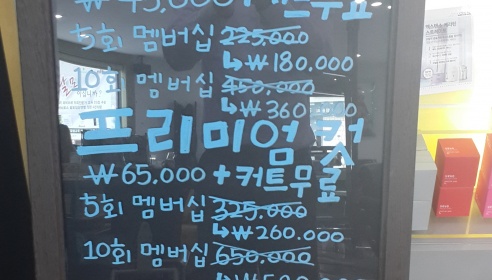 ₩45,000 + 커트무료
5회 멤버십 225,000
↳₩180,000
10회 멤버십 450,000
↳₩360,000
프리미엄 컷
₩65,000 + 커트무료
5회 멤버십 325,000
↳₩260,000
10회 멤버십 650,000